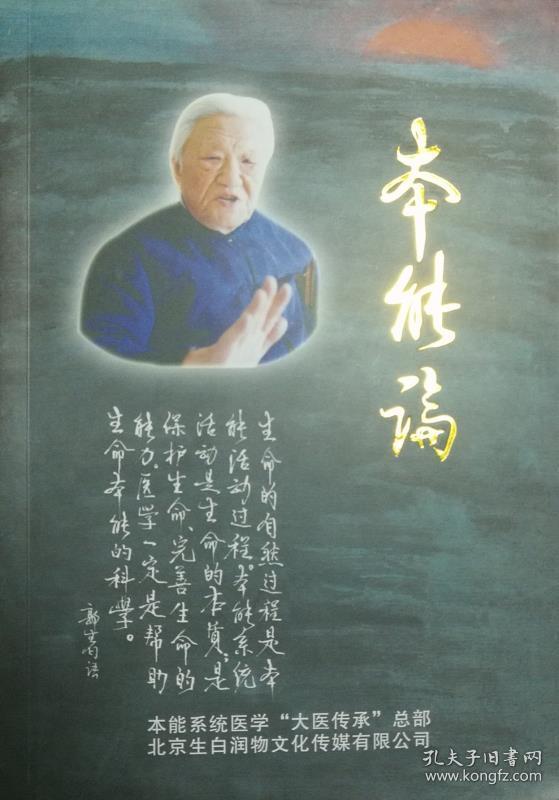 本能論
生命的自然过程是本
能活动过程。本能系统
活动是生命的本質；是
保护生命、完善生命的
能力。医学一定是帮助
生命本能的科學。
郭生白语
本能系统医学“大医传承”总部
北京生白润物文化传媒有限公司
孔夫子旧书网
www.kongfz.com